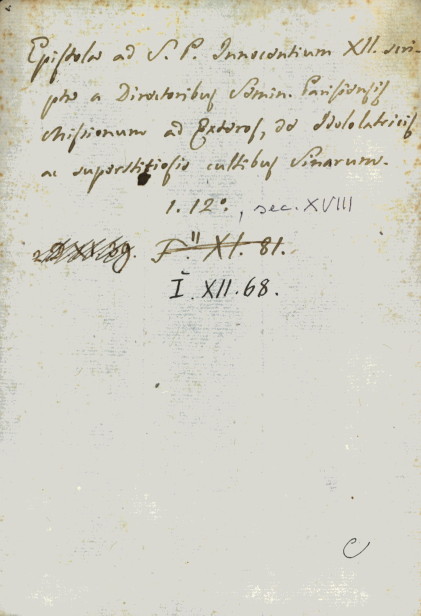 Epistola ad S. P. Innocentium XII. scri-
pta a Directoribus Semin. Parisiensis
Missionum ad Exteros, de Idololatricis
ac superstitiosis cultibus Sinarum.
1. 12°., sec. XVIII
F." XI. 81.
I. XII. 68.
C